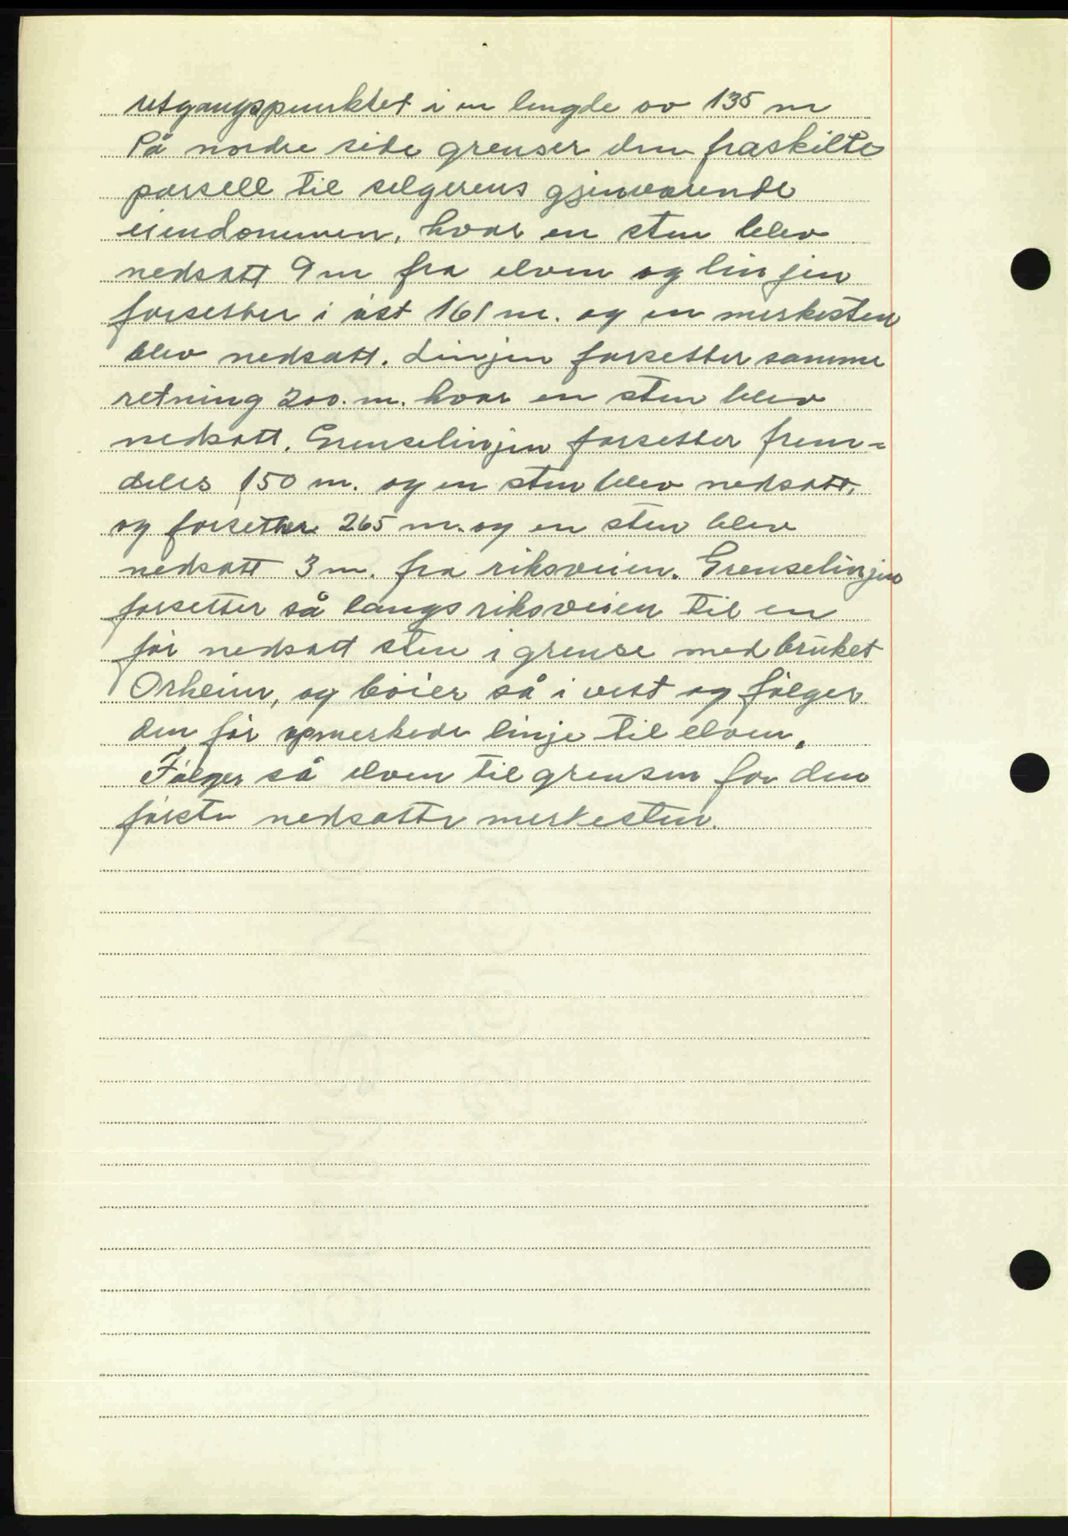 utgangspunktet i en lengde av 135 m
På nordre side grenser den fraskilte
parsell til selgerens gjenværende
eiendommen, hvor en sten blev
nedsatt 9 m fra elven og linjen
forsetter i øst 161 m. og en merkesten
blev nedsatt. Linjen forsetter samme
retning 200. m. hvor en sten blev
nedsatt. Grenselinjen forsetter frem-
deles 150 m. og en sten blev nedsatt,
og forsetter 265 m. og en sten blev
nedsatt 3 m. fra riksveien. Grenselinjen
forsetter så langs riksveien til en
før nedsatt sten i grense med bruket
Orheim, og bøier så i vest og følger
den før opmerkede linje til elven.
Følger så elven til grensen for den
første nedsatte merkesten.